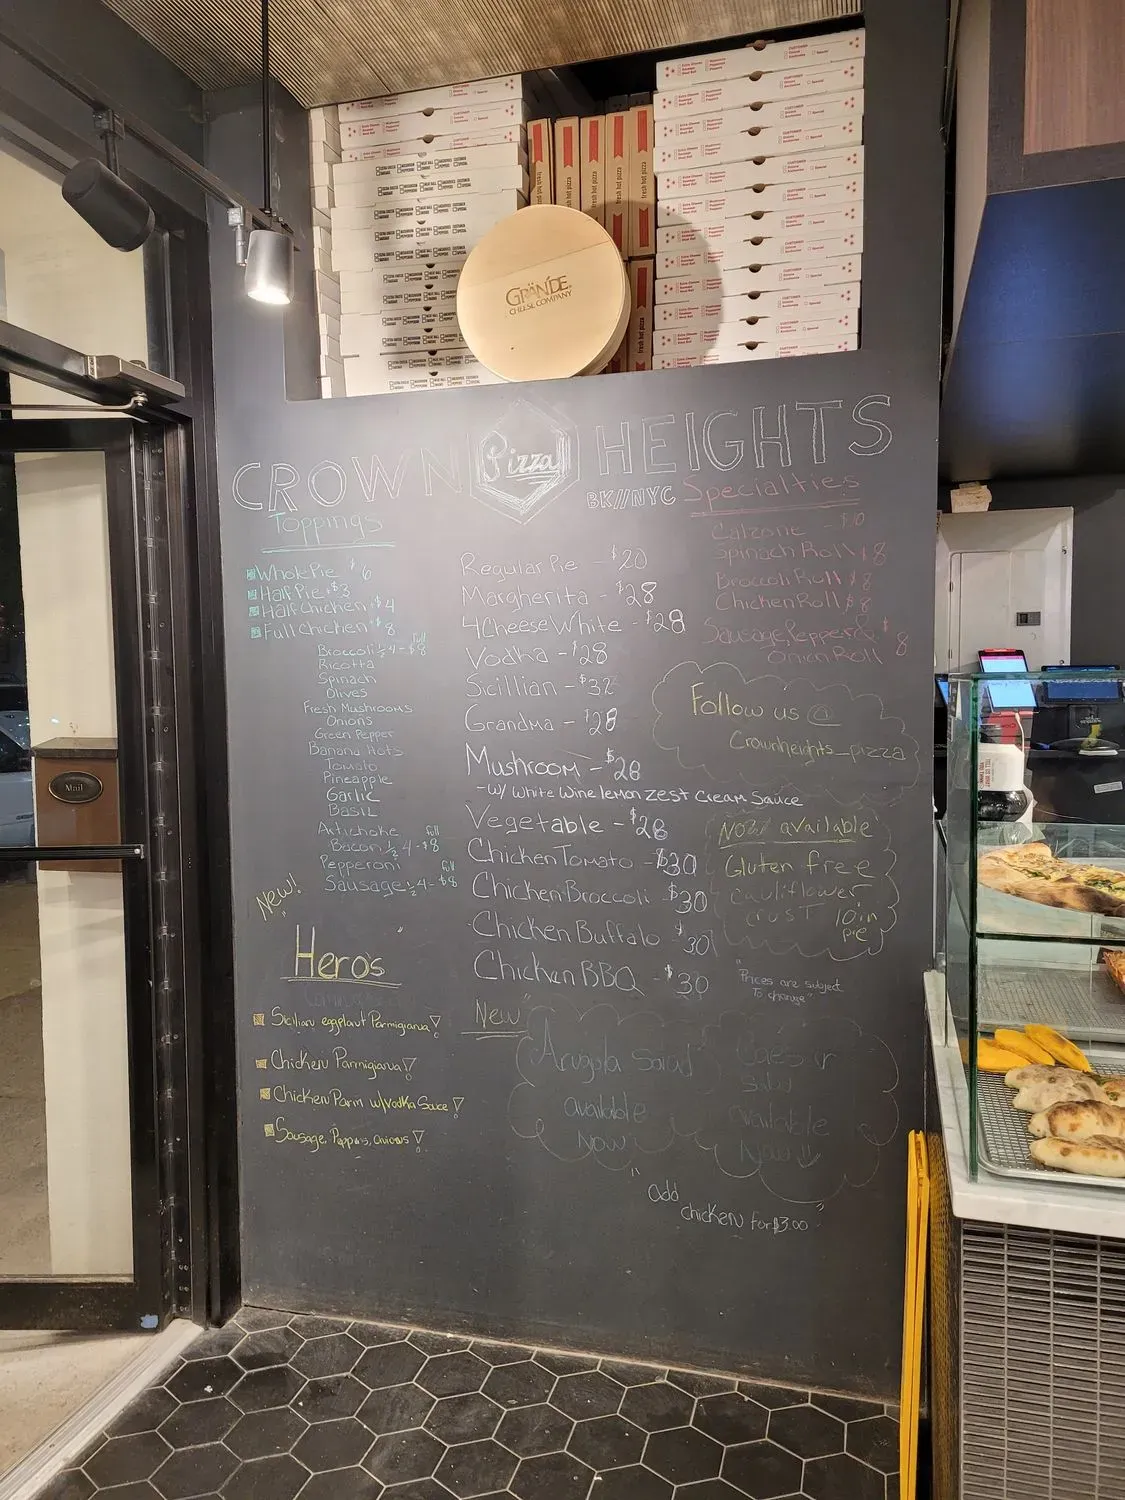 GRANDE
CHEESE COMPANY
fresh hot pizza
fresh hot pizza
fresh hot pizza
fresh hot pizza
fresh hot pizza
CROWN Pizza HEIGHTS
BK//NYC
Toppings
Whole Pie $6
Half Pie $3
Half Chicken $4
Full Chicken $8
Broccoli ½ 4 - full $8
Ricotta
Spinach
Olives
Fresh Mushrooms
Onions
Green Pepper
Banana Hots
Tomato
Pineapple
Garlic
Basil
Artichoke
Bacon ½ 4 - full $8
Pepperoni
Sausage ½ 4 - full $8
New!
Heros
Sicilian eggplant Parmigiana!
Chicken Parmigiana!
Chicken Parm w/Vodka Sauce!
Sausage, Peppers, onions!
Regular Pie - $20
Margherita - $28
4 Cheese White - $28
Vodka - $28
Sicillian - $32
Grandma - $28
Mushroom - $28
- w/ White Wine lemon zest Cream Sauce
Vegetable - $28
Chicken Tomato - $30
Chicken Broccoli $30
Chicken Buffalo $30
Chicken BBQ - $30
"New"
Arugula Salad
available
Now
Caesar
Salad
available
Now
"add
chicken for $3.00"
Specialties
Calzone - $10
Spinach Roll $8
Broccoli Roll $8
Chicken Roll $8
Sausage, Pepper & $8
Onion Roll
Follow us @
Crownheights_pizza
Now available
Gluten free
cauliflower
crust 10in
pie
"Prices are subject
To change"
Mail